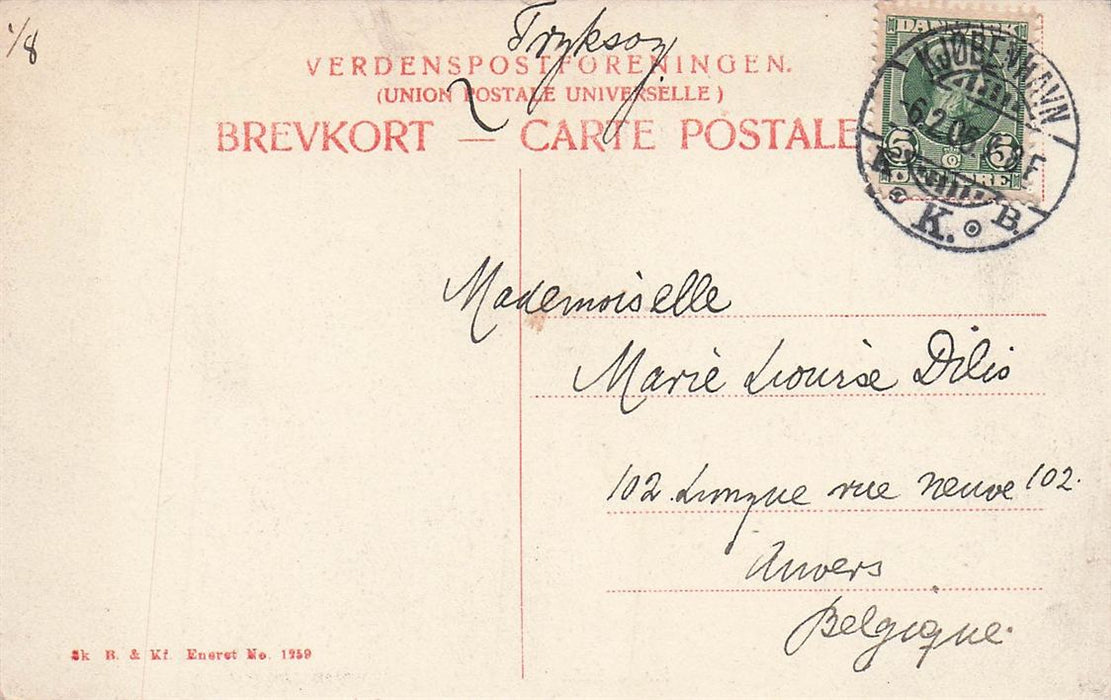 1/8
Tryksag
VERDENSPOSTFORENINGEN.
(UNION POSTALE UNIVERSELLE)
BREVKORT — CARTE POSTALE
DANMARK
5 5
ØRE
KJØBENHAVN
-6.2.06.
F
K. K. B.
Mademoiselle
Marie Louise Dilis
102. Longue rue neuve 102.
Anvers
Belgique.
Sk B. & Kf. Eneret No. 1259